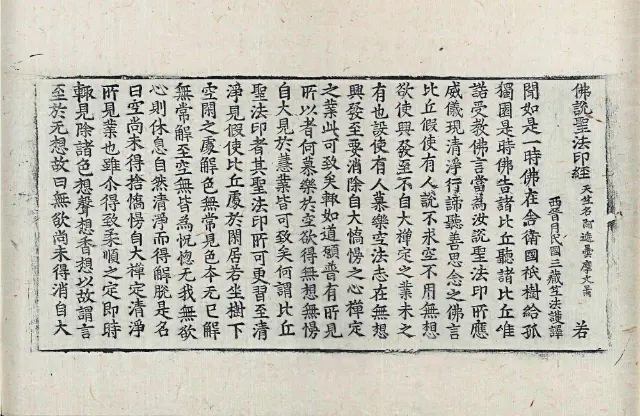 佛說聖法印經 天竺名阿遮曇摩文啚 若
西晉月氏國三藏竺法護譯
聞如是一時佛在舍衛國祇樹給孤
獨園是時佛告諸比丘聽諸比丘唯
諾受教佛言當為汝說聖法印所應
威儀現清淨行諦聽善思念之佛言
比丘假使有人說不求空不用無想
欲使興發至不自大禪定之業未之
有也設使有人慕樂空法志在無想
興發至要消除自大憍慢之心禪定
之業此可致矣輒如道願普有所見
所以者何慕樂於空欲得無想無慢
自大見於慧業皆可致矣何謂比丘
聖法印者其聖法印所可更習至清
淨見假使比丘處於閑居若坐樹下
空閑之處解色無常見色本无已解
無常解至空無皆為恍惚无我無欲
心則休息自然清淨而得解脫是名
曰空尚未得捨憍慢自大禪定清淨
所見業也雖尒得致柔順之定即時
輒見除諸色想聲想香想以故謂言
至於无想故曰無欲尚未得消自大